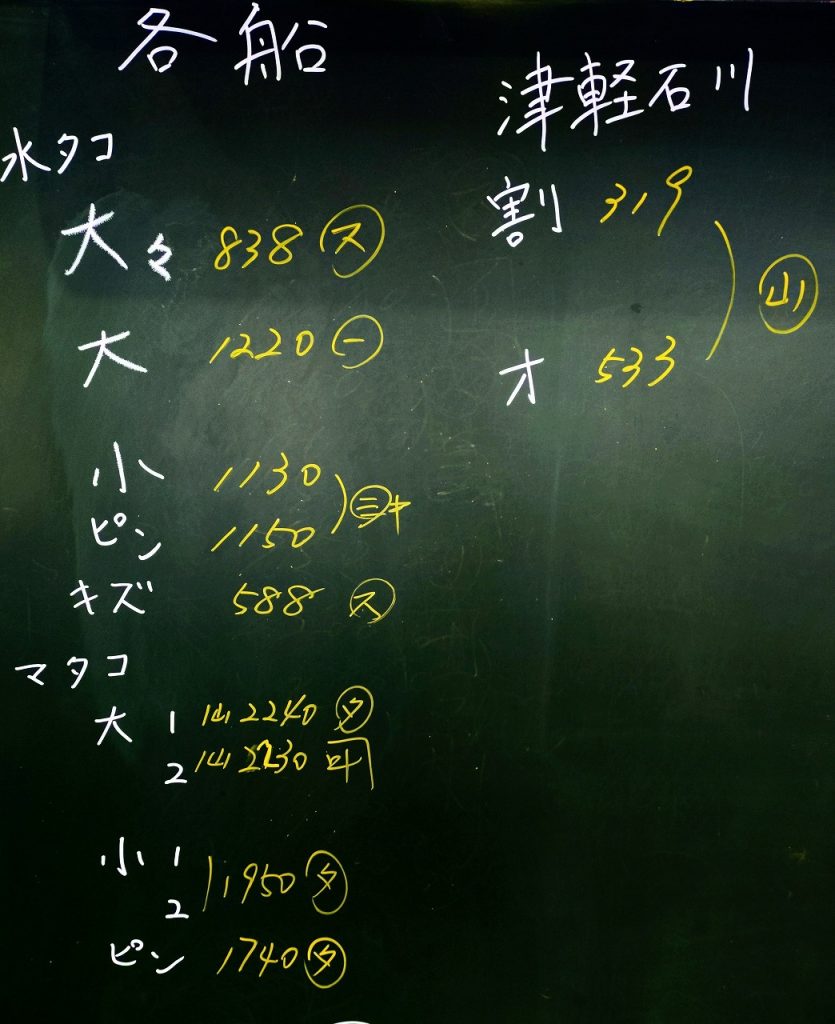 各船
水タコ
大々 838 ㋜
大 1220 ㊀
小 1130
ピン 1150 ㊂キ
キズ 588 ㋜
マタコ
大 1 山 2240 ㋟
2 山 2230
小 1
2 1950 ㋟
ピン 1740 ㋟
津軽石川
割 319
オ 533
山